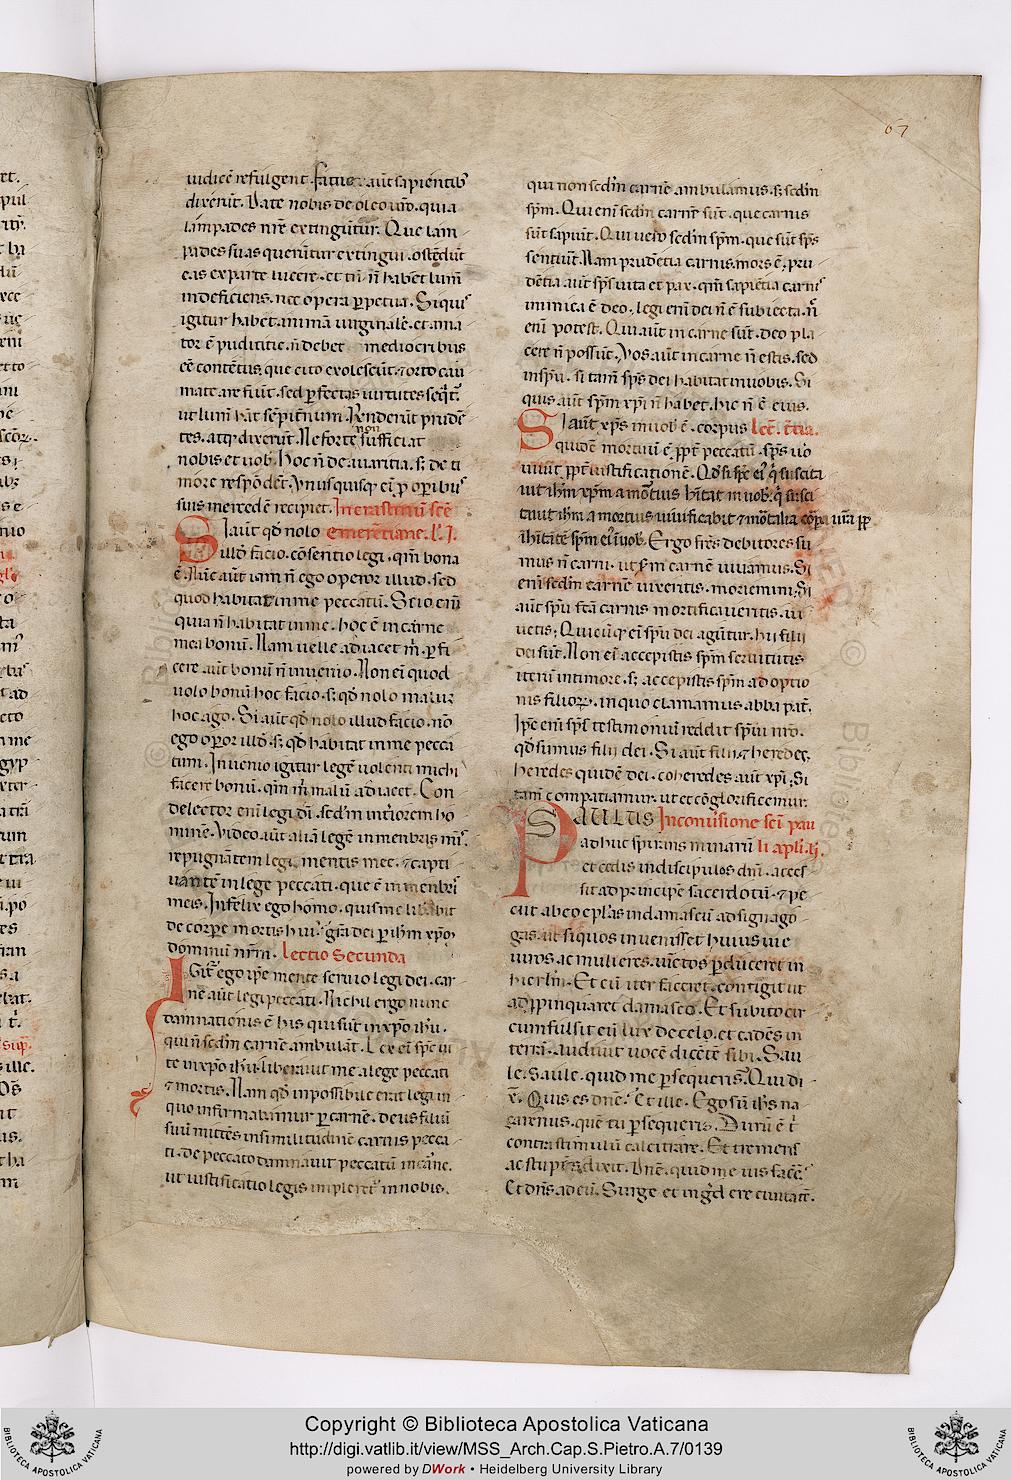 67
iudicẽ refulgent. Fatue aut̃ sapientib᷒
dixerũt. Date nobis de oleo ur̃o. quia
lampades nr̃e extingũtur. Que lam
pades suas querũtur extingui. ostẽdũt
eas ex parte lucere. et tñ ñ habẽt lum̃
indeficiens. nec opera ꝑpetua. Siquis᷒
igitur habet animã uirginalẽ. et ama
tor ẽ pudititie. ñ debet mediocribus
eẽ contẽtus. que cito exolescũt. ⁊ orto cau
mate arefiũt. sed ꝑfectas uirtutes seq̃t᷑.
ut lum̃ hãt sẽpit̃num. Rñderũt prudẽ
tes. atq; dixerũt. Ne forte non sufficiat
nobis et uob̃. Hoc ñ de auaritia. s; de ti
more respõdẽt. Vnusquisq; eni ꝓ oꝑibu᷒
suis mercedẽ recipiet. In
Si aut̃ qđ nolo emerẽtiane. l̃. I.
illđ facio. cõsentio legi. qm̃ bona
ẽ. Nũc aut̃ iam ñ ego operor illud. sed
quod habitat in me peccatũ. Scio enĩ
quia ñ habitat in me. hoc ẽ in carne
mea bonũ. Nam uelle adiacet m̃. ꝑfi
cere aut̃ bonũ ñ inuenio. Non ei quod
uolo bonũ hoc facio. s; qđ nolo malum
hoc ago. Si aut̃ qđ nolo illud facio. nõ
ego oꝑor illđ. s; qđ habitat in me pecca
tum. Inuenio igitur legẽ uolenti michi
facere bonũ. qm̃ m̃ malũ adiacet. Con
delector eni legi dĩ. sc̃dm int̃iorem ho
minẽ. Video aut̃ aliã legẽ in menbris m̃s.
repugnãtem legi mentis mee. ⁊ capti
uantẽ in lege peccati. que ẽ in menbris᷒
meis. Infelix ego homo. quis me libabit
de corpe mortis hui᷒. gr̃a dei ꝑ ihm̃ xp̃o
dominũ nrm̃. Lectio Secunda
IGit᷑ ego ip̃e mente seruio legi dei. car
ne aut̃ legi peccati. Nichil ergo nunc
damnationis ẽ his qui sũt in xp̃o ihũ.
qui ñ sc̃dm carnẽ ambulãt. Lex eñ sp̃c ui
te in xp̃o ihũ. liberauit me a lege peccati
⁊ mortis. Nam qđ inpossibile erat legi in
quo infirmabimur ꝑ carnẽ. deus filiũ
suũ mittẽs in similitudinẽ carnis pecca
ti. de peccato damnauit peccatũ in carne.
ut iustificatio legis impleret᷑ in nobis.
qui non sc̃dm carnẽ ambulamus. s; sc̃dm
sp̃m. Qui eni sc̃dm carnẽ sũt. que carnis
sũt sapiũt. Qui uero sc̃dm sp̃m. que sũt sp̃s
sentiũt. Nam prudẽtia carnis. mors ẽ. pru
dẽtia aut̃ sp̃s uita et pax. qm̃ sapiẽtia carnis᷒
inimica ẽ deo. legi eni dei ñ ẽ subiecta. ñ
eni potest. Qui aut̃ in carne sũt. deo pla
cere ñ possũt. Vos aut̃ in carne ñ estis. sed
in sp̃u. si tam̃ sp̃s dei habitat in uobis. Si
quis aut̃ sp̃m xp̃i ñ habet. hic ñ ẽ eius.
Si aũt xp̃s in uob̃ ẽ. corpus lect̃. t̃tia.
quidẽ mortuũ ẽ ꝓpt̃ peccatũ. sp̃s uo
uiuit ꝓpt̃ iustificationẽ. Qđ si sp̃c ei᷒ q̃ suscita
uit ihm̃ xp̃m a mortuis h̃itat in uob̃. q̃ susci
tauit ihm̃ a mortuis uiuificabit ⁊ mortalia corpa uĩa ꝓꝑ
ihitãtẽ sp̃m ei᷒ ĩ uob̃. Ergo fr̃es debitores su
mus ñ carni. ut sc̃dm carnẽ uiuamus. Si
eni sc̃dm carnẽ uixeritis. moriemini. Si
aũt sp̃u fc̃ã carnis mortificaueritis. ui
uetis. Quicũq; eni sp̃u dei agũtur. hii filii
dei sũt. Non ei accepistis sp̃m seruitutis
iterũ in timore. s; accepistis sp̃m adoptio
nis filioꝝ. in quo clamamus abba pat̃.
Ip̃e eni sp̃s testimoniũ reddit sp̃ui nr̃o.
qđ sumus filii dei. Si aũt filii. ⁊ heredes.
heredes quidẽ dei. coheredes aũt xp̃i. Si
tam̃ compatiamur. ut et cõglorificemur.
PSAULUS Inconuersione sc̃i pau
adhuc spirans minarũ li apl̃i. l̃i.
et cedis in discipulos dñi. acces
sit ad principẽ sacerdotũ. ⁊ pe
ciit ab eo epl̃as in damascũ ad signago
gas. ut si quos inuenisset huius uie
uiros ac mulieres. uĩctos ꝑduceret in
hierl̃m. Et cũ iter faceret. contigit ut
adꝓpinquaret damasco. Et subito cir
cumfulsit eũ lux de celo. et cadẽs in
terrã. audiuit uocẽ dicẽtẽ sibi. Sau
le. saule. quid me ꝑsequeris? Qui di
x̃. Quis es dñe? Et ille. Ego sũ ihs na
çarenus. quẽ tu ꝑsequeris. Durũ ẽ t̃
contra stimulũ calcitrare. Et tremens
ac stupẽs dixit. Dñe. quid me uis facẽ?
Et dñs ad eũ. Surge et ingr̃dere ciuitatẽ.
Copyright © Biblioteca Apostolica Vaticana
http://digi.vatlib.it/view/MSS_Arch.Cap.S.Pietro.A.7/0139
powered by DWork • Heidelberg University Library
BIBLIOTECA APOSTOLICA VATICANA
BIBLIOTECA APOSTOLICA VATICANA